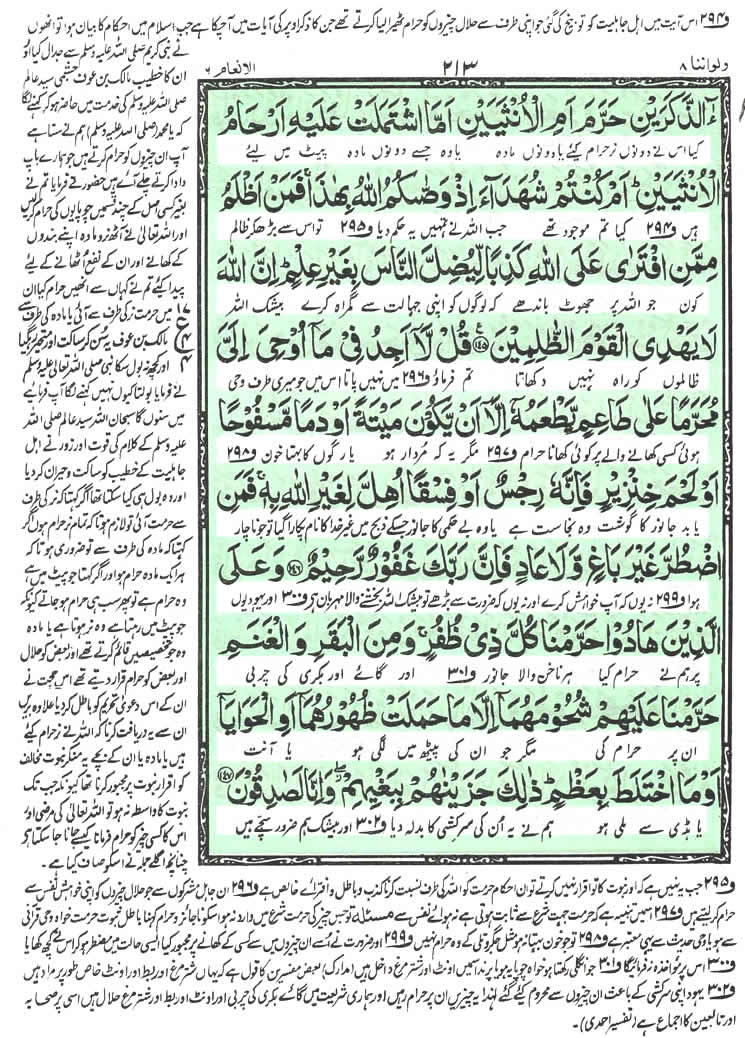 و۲۹۴ اس آیت میں اہل جاہلیت کو توبیخ کی گئی جو اپنی طرف سے حلال چیزوں کو حرام ٹھہرا لیا کرتے تھے جن کا ذکر اوپر کی آیات میں آچکا ہے جب اسلام میں احکام کا بیان ہوا تو انھوں
ولواننا ۸
۲۱۳
الانعام ۶
ءٰٓالذَّكَرَيْنِ حَرَّمَ اَمِ الْاُنْثَيَيْنِ اَمَّا اشْتَمَلَتْ عَلَيْهِ اَرْحَامُ
کیا اس نے دونوں نر حرام کیئے یا دونوں مادہ یا وہ جسے دونوں مادہ پیٹ میں لیئے
الْاُنْثَيَيْنِ ؕ اَمْ كُنْتُمْ شُهَدَآءَ اِذْ وَصّٰىكُمُ اللّٰهُ بِهٰذَا ۚ فَمَنْ اَظْلَمُ
ہیں و۲۹۴ کیا تم موجود تھے جب اللہ نے تمہیں یہ حکم دیا و۲۹۵ تو اس سے بڑھ کر ظالم
مِمَّنِ افْتَرٰى عَلَى اللّٰهِ كَذِبًا لِّيُضِلَّ النَّاسَ بِغَيْرِ عِلْمٍ ؕ اِنَّ اللّٰهَ
کون جو اللہ پر جھوٹ باندھے کہ لوگوں کو اپنی جہالت سے گمراہ کرے بیشک اللہ
لَا يَهْدِى الْقَوْمَ الظّٰلِمِيْنَ ﴿۱۴۵﴾ قُلْ لَّاۤ اَجِدُ فِىْ مَاۤ اُوْحِىَ اِلَىَّ
ظالموں کو راہ نہیں دکھاتا تم فرماؤ و۲۹۶ میں نہیں پاتا اس میں جو میری طرف وحی
مُحَرَّمًا عَلٰى طَاعِمٍ يَّطْعَمُهٗۤ اِلَّاۤ اَنْ يَّكُوْنَ مَيْتَةً اَوْ دَمًا مَّسْفُوْحًا
ہوئی کسی کھانے والے پر کوئی کھانا حرام و۲۹۷ مگر یہ کہ مُردار ہو یا رگوں کا بہتا خون و۲۹۸
اَوْ لَحْمَ خِنْزِيْرٍ فَاِنَّهٗ رِجْسٌ اَوْ فِسْقًا اُهِلَّ لِغَيْرِ اللّٰهِ بِهٖ ۚ فَمَنِ
یا بد جانور کا گوشت وہ نجاست ہے یا وہ بے حکمی کا جانور جسکے ذبح میں غیر خدا کا نام پکارا گیا تو جو ناچار
اضْطُرَّ غَيْرَ بَاغٍ وَّلَا عَادٍ فَاِنَّ رَبَّكَ غَفُوْرٌ رَّحِيْمٌ ﴿۱۴۶﴾ وَعَلَى
ہوا و۲۹۹ نہ یوں کہ آپ خواہش کرے اور نہ یوں کہ ضرورت سے بڑھے تو بیشک اللہ بخشنے والا مہربان ہے و۳۰۰ اور یہودیوں
الَّذِيْنَ هَادُوْا حَرَّمْنَا كُلَّ ذِىْ ظُفُرٍ ۚ وَمِنَ الْبَقَرِ وَالْغَنَمِ
پر ہم نے حرام کیا ہر ناخن والا جانور و۳۰۱ اور گائے اور بکری کی چربی
حَرَّمْنَا عَلَيْهِمْ شُحُوْمَهُمَاۤ اِلَّا مَا حَمَلَتْ ظُهُوْرُهُمَاۤ اَوِ الْحَوَايَاۤ
ان پر حرام کی مگر جو ان کی پیٹھ میں لگی ہو یا آنت
اَوْ مَا اخْتَلَطَ بِعَظْمٍ ؕ ذٰلِكَ جَزَيْنٰهُمْ بِبَغْيِهِمْ ۖ وَاِنَّا لَصٰدِقُوْنَ ﴿۱۴۷﴾
یا ہڈی سے ملی ہو ہم نے یہ اُن کی سرکشی کا بدلہ دیا و۳۰۲ اور بیشک ہم ضرور سچّے ہیں
نے نبی کریم صلی اللہ علیہ وسلم سے جدال کیا اور
ان کا خطیب مالک بن عوف جشمی سید عالم
صلی اللہ علیہ وسلم کی خدمت میں حاضر ہو کر کہنے لگا
کہ یا محمد (صلی اللہ علیہ وسلم) ہم نے سنا ہے
آپ ان چیزوں کو حرام کرتے ہیں جو ہمارے باپ
دادا کرتے چلے آئے ہیں حضور نے فرمایا تم نے
بغیر کسی اصل کے چند قسمیں چوپایوں کی حرام کرلیں
اور اللہ تعالیٰ نے آٹھ نر و مادہ اپنے بندوں
کے کھانے اور ان کے نفع اٹھانے کے لیے
پیدا کیئے تم نے کہاں سے انھیں حرام کیا ان
میں حرمت نر کی طرف سے آئی یا مادہ کی طرف سے
مالک بن عوف یہ سُن کر ساکت اور متحیر رہ گیا
اور کچھ نہ بول سکا نبی صلی اللہ تعالیٰ علیہ وسلم
نے فرمایا بولتا کیوں نہیں کہنے لگا آپ فرمائیے
میں سنوں گا سبحان اللہ سید عالم صلی اللہ
علیہ وسلم کے کلام کی قوت اور زور نے اہل
جاہلیت کے خطیب کو ساکت و حیران کر دیا
اور وہ بول ہی کیا سکتا تھا اگر کہتا کہ نر کی طرف
سے حرمت آئی تو لازم ہوتا کہ تمام نر حرام ہوں اگر
کہتا کہ مادہ کی طرف سے تو ضروری ہوتا کہ
ہر ایک مادہ حرام ہو اور اگر کہتا جو پیٹ میں ہے
وہ حرام ہے تو پھر سب ہی حرام ہو جاتے کیونکہ
جو پیٹ میں رہتا ہے وہ نر ہوتا ہے یا مادہ
وہ جو تخصیصیں قائم کرتے تھے اور بعض کو حلال
اور بعض کو حرام قرار دیتے تھے اس حجت نے
ان کے اس دعوی تحریم کو باطل کر دیا علاوہ بریں
ان سے یہ دریافت کرنا کہ اللہ نے نر حرام کیئے
ہیں یا مادہ یا ان کے بچے یہ منکر نبوت مخالف
کو اقرار نبوت پر مجبور کرتا تھا کیونکہ جب تک
نبوت کا واسطہ نہ ہو تو اللہ تعالیٰ کی مرضی اور
اس کا کسی چیز کو حرام فرمانا کیسے جانا جا سکتا ہے
چنانچہ اگلے جملہ نے اسکو صاف کیا ہے۔
و۲۹۵ جب یہ نہیں ہے اور نبوت کا تو اقرار نہیں کرتے تو ان احکام حرمت کو اللہ کی طرف نسبت کرنا کذب و باطل و افترائے خالص ہے و۲۹۶ ان جاہل مشرکوں سے جو حلال چیزوں کو اپنی خواہش نفس سے
حرام کر لیتے ہیں و۲۹۷ اس میں تنبیہ ہے کہ حرمت جہت شرع سے ثابت ہوتی ہے نہ ہوائے نفس سے مسئلہ تو جس چیز کی حرمت شرع میں وارد نہ ہو اسکو ناجائز و حرام کہنا باطل ثبوت حرمت خواہ وحی قرآنی
سے ہو یا وحی حدیث سے یہی معتبر ہے و۲۹۸ تو جو خون بہتا نہ ہو مثل جگر و تلی کے وہ حرام نہیں و۲۹۹ اور ضرورت نے اُسے ان چیزوں میں سے کسی کے کھانے پر مجبور کیا ایسی حالت میں مضطر ہو کر اس نے کچھ کھایا
و۳۰۰ اس پر مواخذہ نہ فرمائیگا و۳۰۱ جو انگلی رکھتا ہو خواہ چوپایہ ہو یا پرند اسمیں اونٹ اور شتر مرغ داخل ہیں (مدارک) بعض مفسرین کا قول ہے کہ یہاں شتر مرغ اور بط اور اونٹ خاص طور پر مراد ہیں
و۳۰۲ یہود اپنی سرکشی کے باعث ان چیزوں سے محروم کیئے گئے لہٰذا یہ چیزیں ان پر حرام رہیں اور ہماری شریعت میں گائے بکری کی چربی اور اونٹ اور بط اور شتر مرغ حلال ہیں اسی پر صحابہ
اور تابعین کا اجماع ہے (تفسیر احمدی)۔